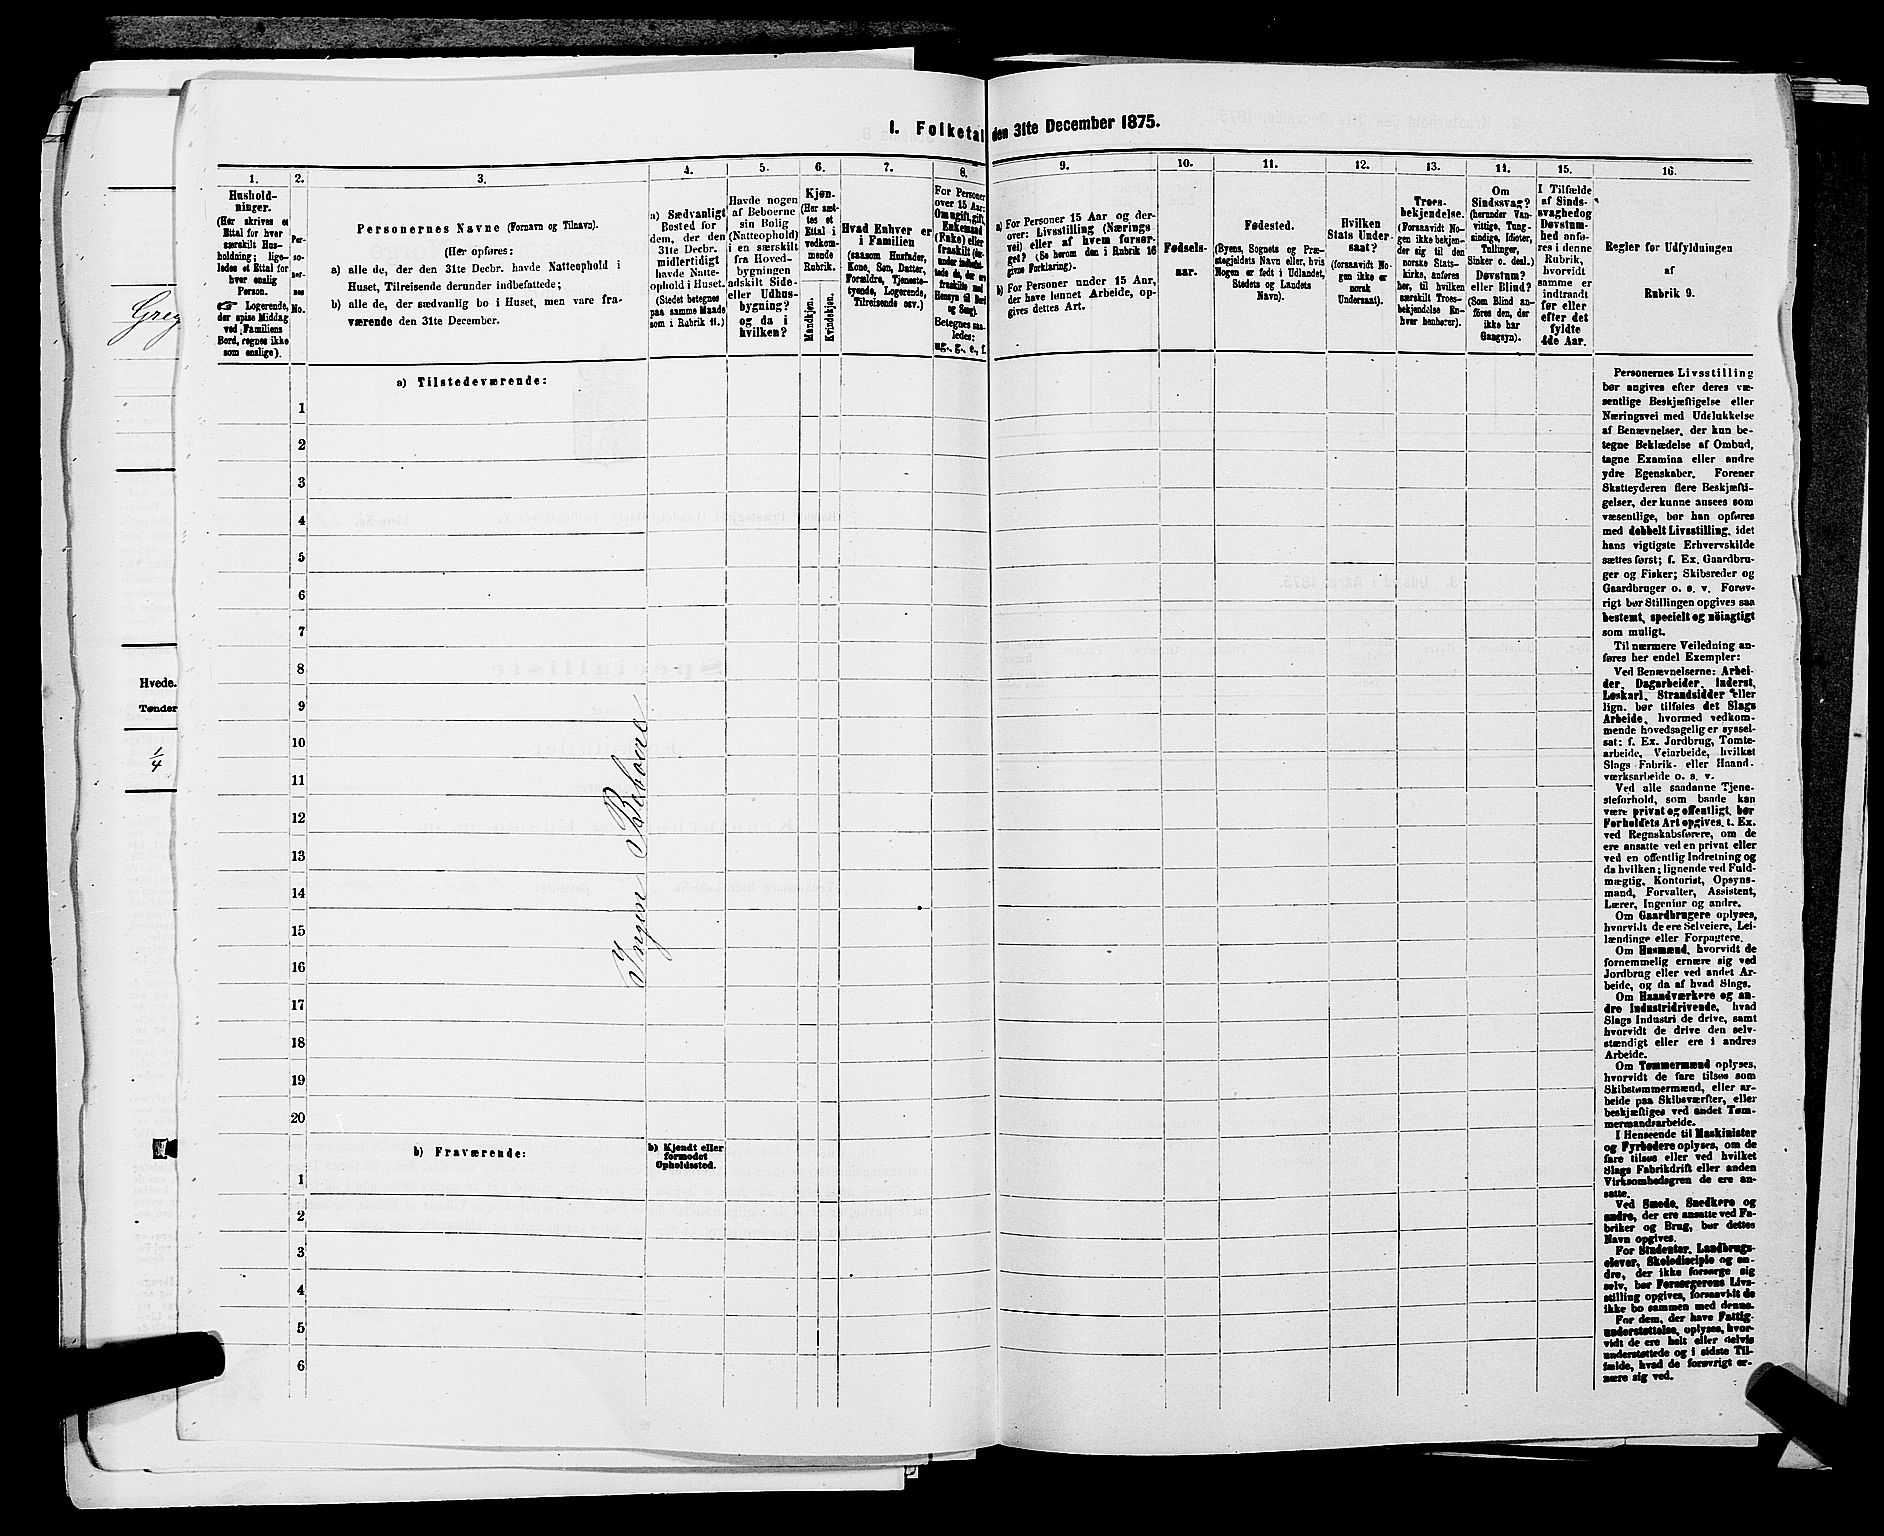 Greg
Hvede.
Tønder
1/4
I. Folketal den 31te December 1875.
1.
Hushold-
ninger.
(Her skrives et
Ettal for hver
særskilt Hus-
holdning; lige-
ledes et Ettal for
hver enslig
Person.
☞ Logerende,
der spise Middag
ved Familiens
Bord, regnes ikke
som enslige).
2.
Per-
so-
ner-
nes
No.
3.
Personernes Navne (Fornavn og Tilnavn).
(Her opføres:
a) alle de, der den 31te Decbr. havde Natteophold i
Huset, Tilreisende derunder indbefattede;
b) alle de, der sædvanlig bo i Huset, men vare fra-
værende den 31te December.
4.
a) Sædvanligt
Bosted for
dem, der den
31te Decbr.
midlertidigt
havde Natte-
ophold i Huset.
(Stedet betegnes
paa samme Maade
som i Rubrik 11.)
5.
Havde nogen
af Beboerne
sin Bolig
(Natteophold)
i en særskilt
fra Hoved-
bygningen
adskilt Side-
eller Udhus-
bygning?
og da i
hvilken?
6.
Kjøn.
(Her sæt-
tes et
Ettal i
vedkom-
mende
Rubrik.
Mandkjøn.
Kvindekjøn.
7.
Hvad Enhver er
i Familien
(saasom Husfader,
Kone, Søn, Datter,
Forældre, Tjeneste-
tyende, Logerende,
Tilreisende osv.)
8.
For Personer
over 15 Aar:
Om ugift, gift,
Enkemand
(Enke) eller
fraskilt (der-
under indbefat-
tede de, der ere
fraskilte med
Hensyn til Bord
og Seng).
Betegnes saa-
ledes:
ug., g., e., f.
9.
a) For Personer 15 Aar og der-
over: Livsstilling (Nærings-
vei) eller af hvem forsør-
get? (Se herom den i Rubrik 16
givne Forklaring).
b) For Personer under 15 Aar,
der have lønnet Arbeide, op-
gives dettes Art.
10.
Fødsels-
aar.
11.
Fødested.
(Byens, Sognets og Præ-
stegjeldets Navn eller, hvis
Nogen er født i Udlandet,
Stedets og Landets
Navn).
12.
Hvilken
Stats Under-
saat?
(forsaavidt No-
gen ikke er
norsk
Undersaat).
13.
Troes-
bekjendelse.
(Forsaavidt No-
gen ikke bekjen-
der sig til den
norske Stats-
kirke, anføres
her, til hvilken
særskilt Troes-
bekjendelse En-
hver henhører).
14.
Om
Sindssvag?
(herunder Van-
vittige, Tung-
sindige, Idioter,
Tullinger,
Sinker o. desl.)
Døvstum?
eller Blind?
(Som Blind an-
føres den, der
ikke har
Gangsyn).
15.
I Tilfælde
af Sinds-
svaghed og
Døvstum-
hed anfø-
res i denne
Rubrik,
hvorvidt
samme er
indtraadt
før eller
efter det
fyldte
4de Aar.
16.
Regler før Udfyldningen
af
Rubrik 9.
a) Tilstedeværende:
1
2
3
4
5
6
7
8
9
10
11
12
13
14
15
16
17
18
19
20
Ingen Beboere
b) Fraværende:
b) Kjendt eller
formodet
Opholdssted.
1
2
3
4
5
6
Personernes Livsstilling
bør angives efter deres væ-
sentlige Beskjæftigelse eller
Næringsvei med Udelukkelse
af Benævnelser, der kun be-
tegne Beklædelse af Ombud,
tagne Examina eller andre
ydre Egenskaber. Forener
Skatteyderen flere Beskjæfti-
gelser, der kunne ansees som
væsentlige, bør han opføres
med dobbelt Livsstilling, idet
hans vigtigste Erhvervskilde
sættes først; f. Ex. Gaardbru-
ger og Fisker; Skibsreder og
Gaardbruger o. s. v. Forøv-
rigt bør Stillingen opgives saa
bestemt, specielt og nöiagtigt
som muligt.
Til nærmere Veiledning an-
føres her endel Exempler:
Ved Benævnelserne: Arbei-
der, Dagarbeider, Inderst,
Løskarl, Strandsidder eller
lign. bør tilføies det Slags
Arbeide, hvormed vedkom-
mende hovedsagelig er syssel-
sat: f. Ex. Jordbrug, Tomte-
arbeide, Veiarbeide, hvilket
Slags Fabrik- eller Haand-
værksarbeide o. s. v.
Ved alle saadanne Tjene-
steforhold, som baade kan
være privat og offentligt, bør
Forholdets Art opgives, t. Ex.
ved Regnskabsførere, om de
ere ansatte ved en privat eller
ved en offentlig Indretning og
da hvilken; lignende ved Fuld-
mægtig, Kontorist, Opsyns-
mand, Forvalter, Assistent,
Lærer, Ingeniør og andre.
Om Gaardbrugere oplyses,
hvorvidt de ere Selveiere, Lei-
lændinge eller Forpagtere.
Om Husmænd, hvorvidt de
fornemmelig ernære sig ved
Jordbrug eller ved andet Ar-
beide, og da af hvad Slags.
Om Haandværkere og an-
dre Industridrivende, hvad
Slags Industri de drive, samt
hvorvidt de drive den selv-
stændigt eller ere i andres
Arbeide.
Om Tømmermænd oplyses,
hvorvidt de fare tilsøs som
Skibstømmermænd, eller ar-
beide paa Skibsværfter, eller
beskjæftiges ved andet Tøm-
mermandsarbeide.
I Henseende til Maskinister
og Fyrbødere oplyses, om de
fare tilsøs eller ved hvilket
Slags Fabrikdrift eller anden
Virksomhedsgren de ere an-
satte.
Ved Smede, Snedkere og
andre, der ere ansatte ved Fa-
briker og Brug, bør dettes
Navn opgives.
For Studenter, Landbrugs-
elever, Skoledisciple og an-
dre, der ikke forsørge sig
selv, bør Forsørgerens Livs-
stilling opgives, forsaavidt de
ikke bo sammen med denne.
For dem, der have Fattig-
understøttelse, oplyses, hvor-
vidt de ere helt eller delvis
understøttede og i sidste Til-
fælde, hvad de forøvrigt er-
nære sig ved.